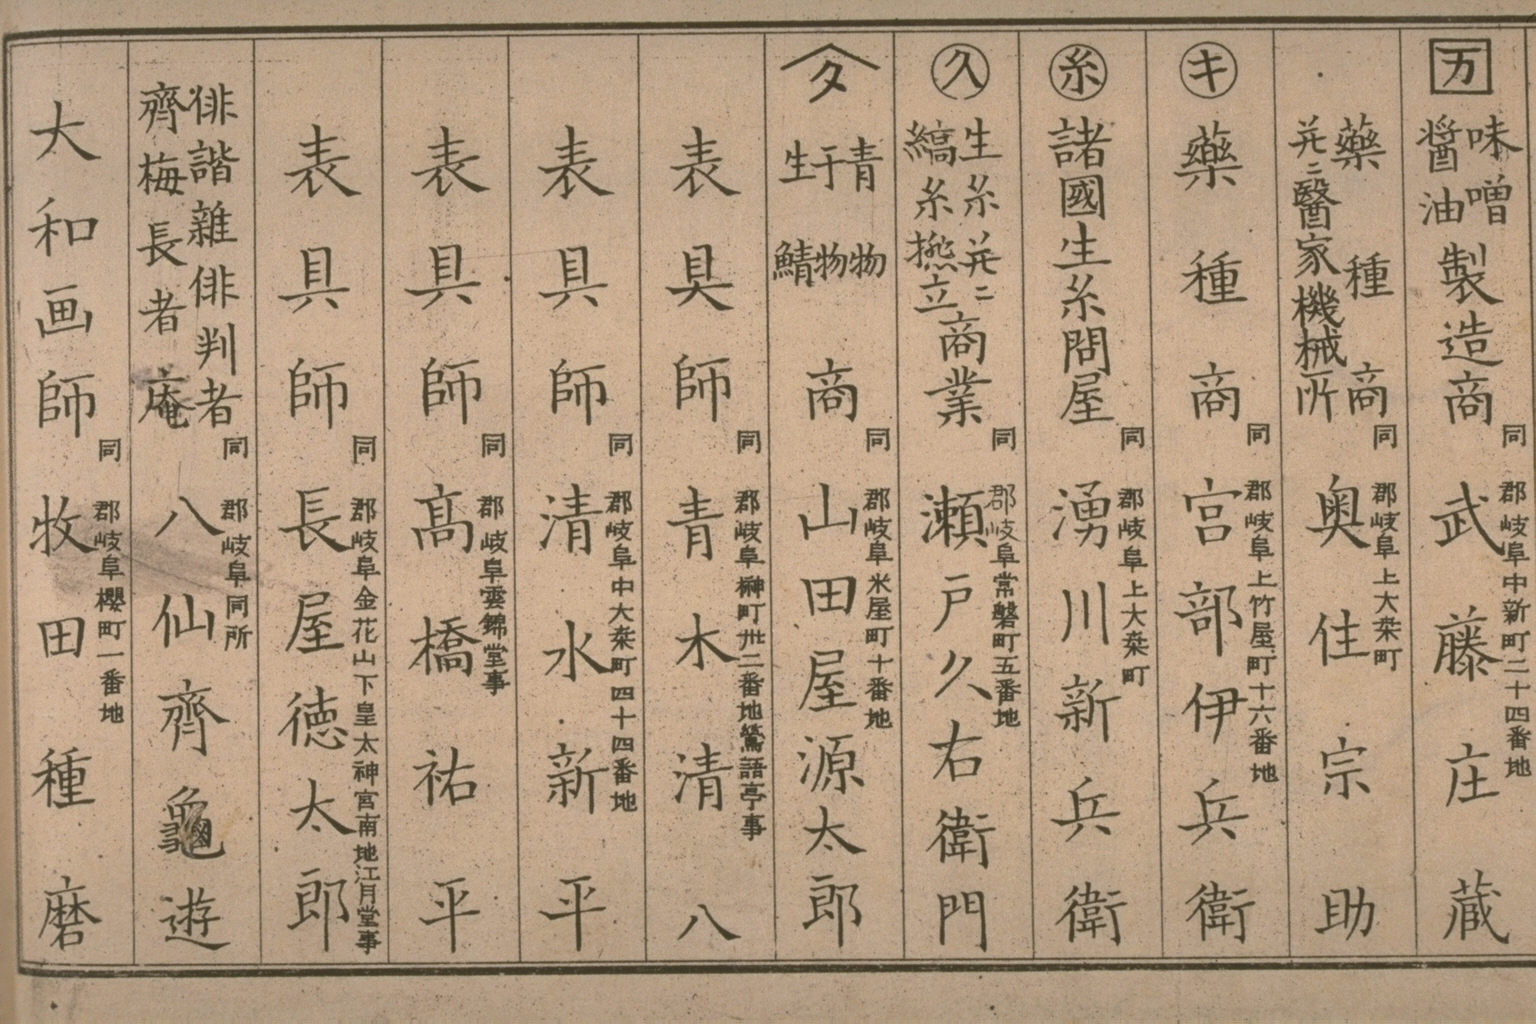 万 味噌醤油製造商 同郡岐阜中新町二十四番地 武藤庄蔵
薬種商 并ニ医家機械所 同郡岐阜上大桒町 奥住宗助
キ 藥種商 同郡岐阜上竹屋町十六番地 宮部伊兵衛
糸 諸國生糸問屋 同郡岐阜上大桒町 湧川新兵衛
久 生糸并ニ縞糸撚立商業 同郡岐阜常磐町五番地 瀬戸久右衛門
タ 青物干物生鯖商 同郡岐阜米屋町十番地 山田屋源太郎
表具師 同郡岐阜榊町卅二番地鶯語亭事 青木清八
表具師 同郡岐阜中大桒町四十四番地 清水新平
表具師 同郡岐阜雲錦堂事 髙橋祐平
表具師 同郡岐阜金花山下皇太神宮南地江月堂事 長屋徳太郎
俳諧雑俳判者 齊梅長者庵 同郡岐阜同所 八仙齊龜遊
大和画師 同郡岐阜櫻町一番地 牧田種磨